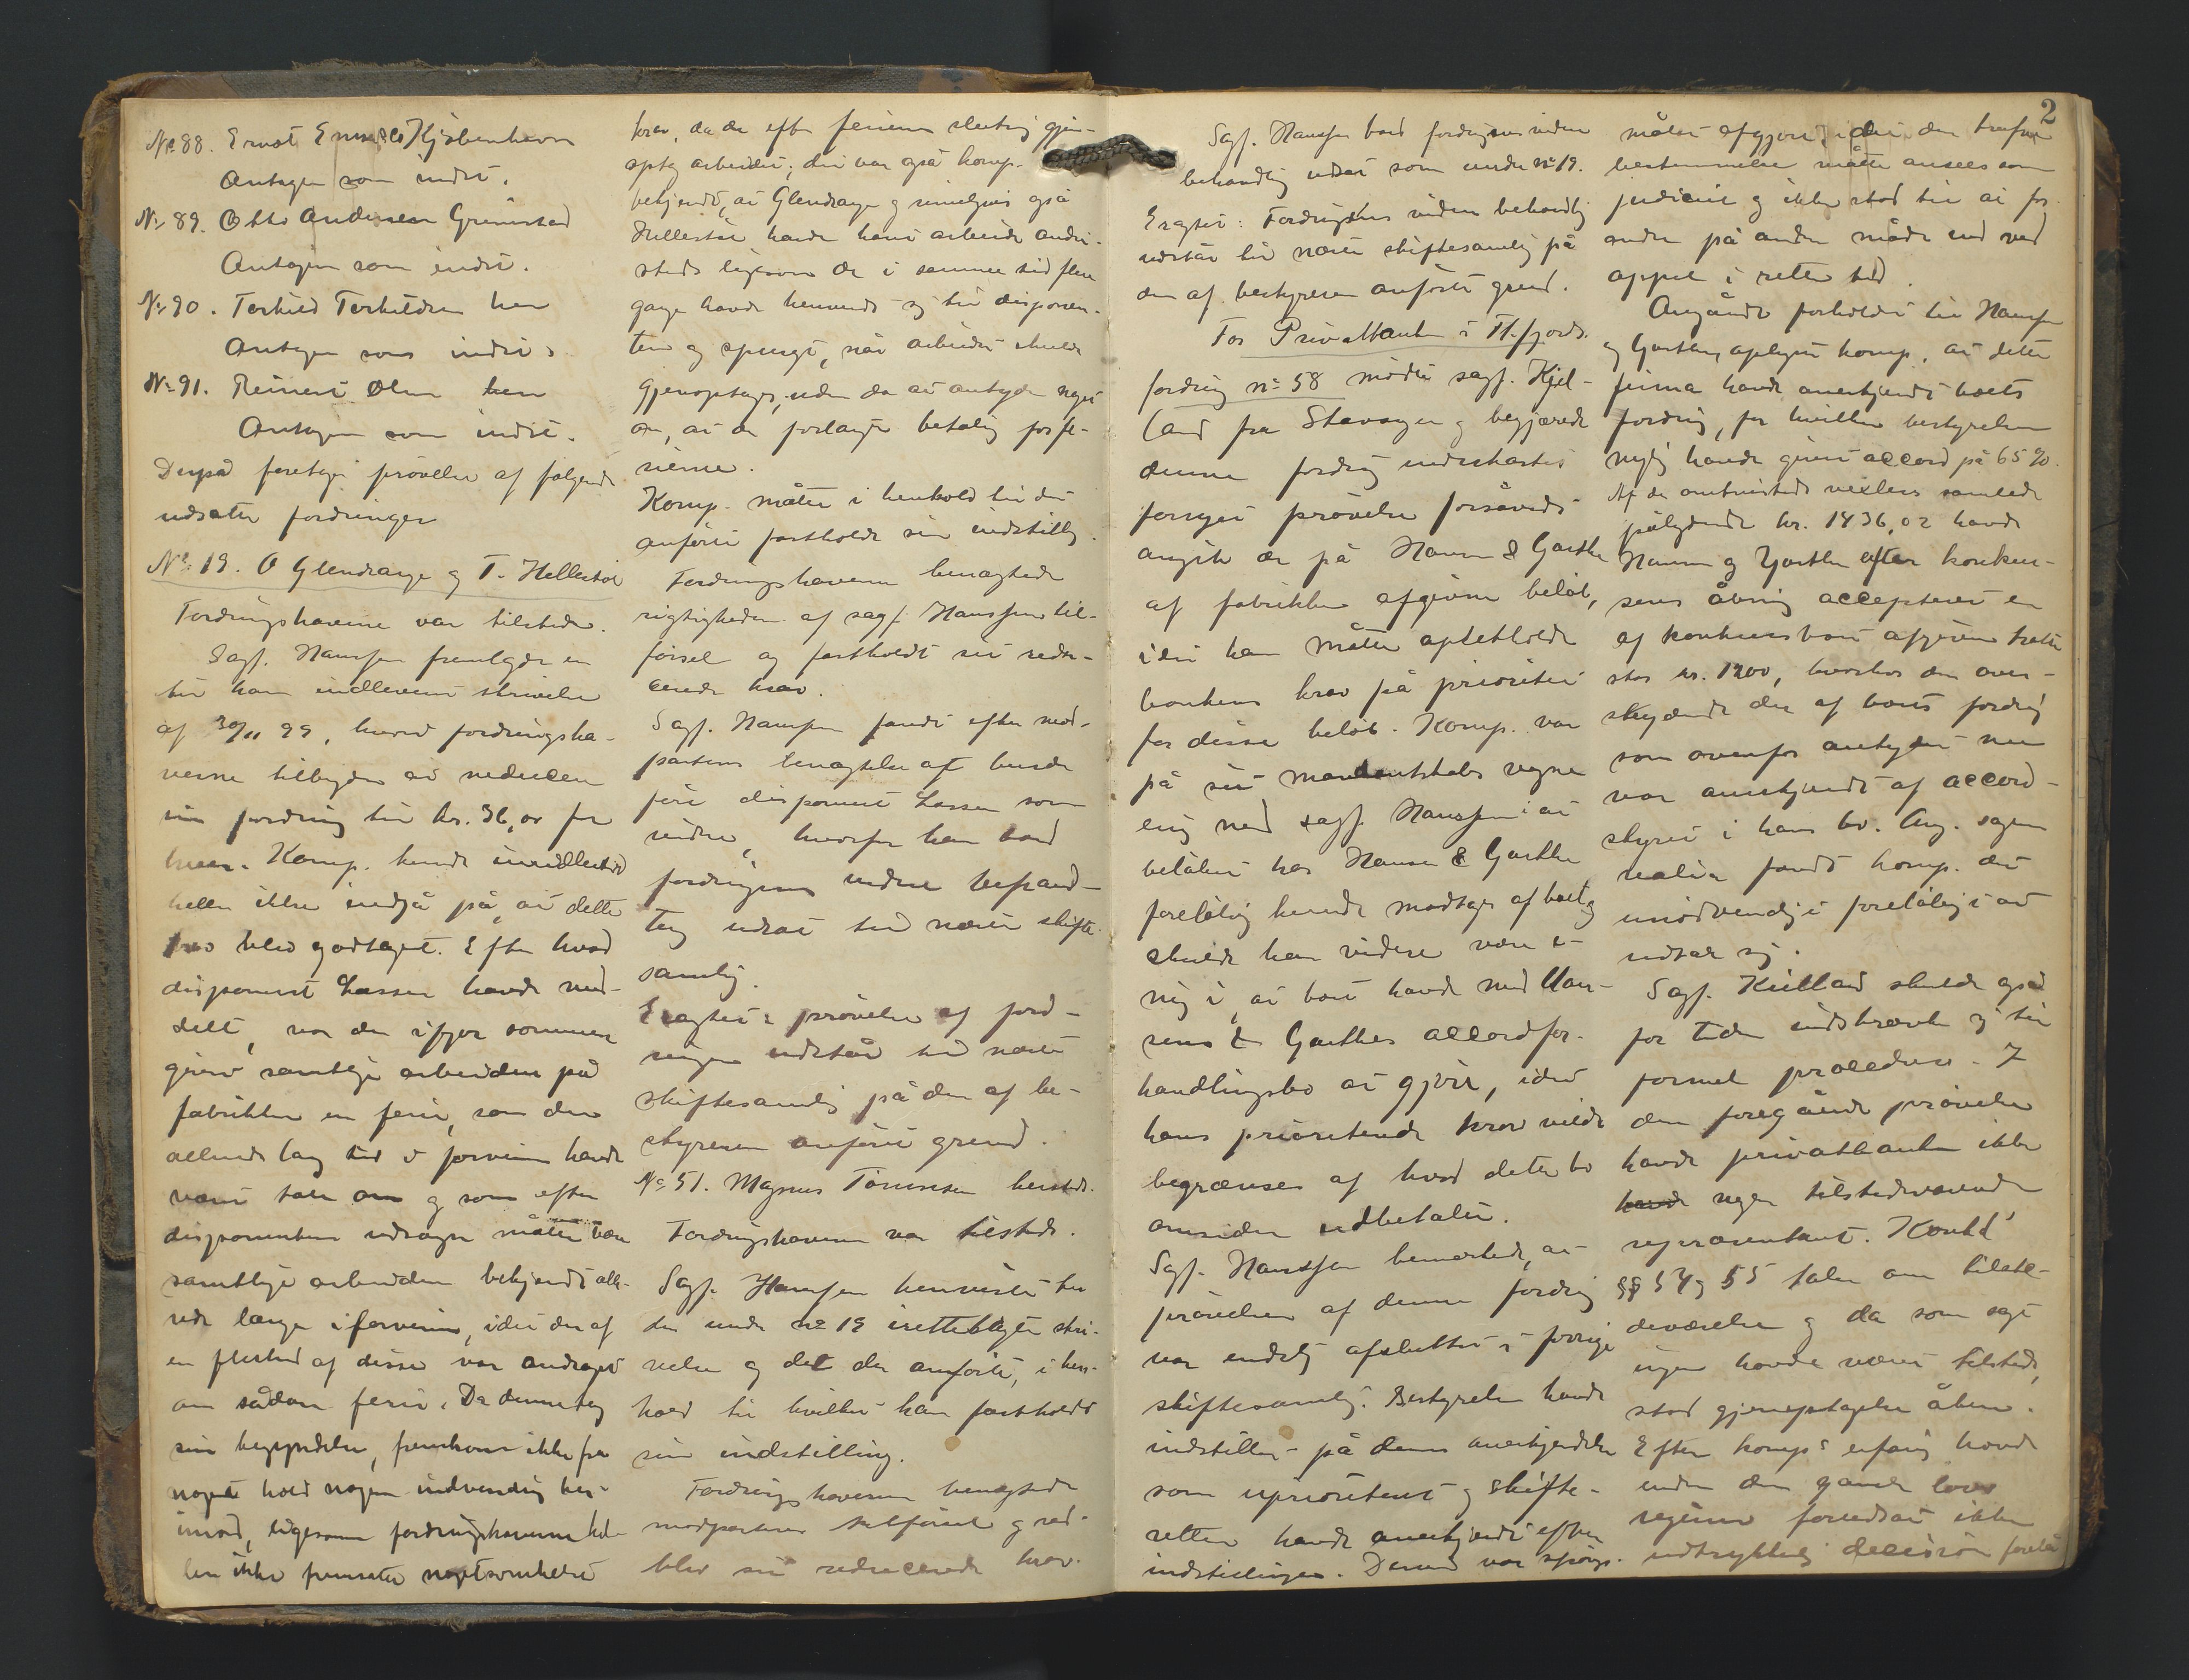 No 88. Ernst Kjøbenhavn
Antagen som indst.
No 89. Otto Andersen Grimstad
Antagen som indst.
No 90. Terkild Terkildsen her
Antagen som indst.
No 91. Reinert Olsen her
Antagen som indst.
Derpå foretoges prøvelse af følgende
udsatte fordringer
No 19. O Glendrange og T. Hellestøl
Fordringshaverne var tilstede.
Sagf. Hanssen fremlagde en
til ham indleveret skrivelse
af 30/11 99, hvorved fordringsha-
verne tilbyder at reducere
sin fordring til kr. 36,00 for
hver. Komp. kunde imidlertid
heller ikke indgå på, at dette
krav blev godtaget. Efter hvad
disponent Larsen havde med-
delt, var der ifjor sommer
givet samtlige arbeidere på
fabrikken en ferie, som der
allerede lang tid i forveien havde
været tale om og som efter
disponentens udsagn måtte være
samtlige arbeidere bekjendt alle-
rede længe i forveien, idet der af
en flerhed af disse var andraget
om sådan ferie. Da denne tog
sin begyndelse, fremkom ikke fra
noget hold nogen indvending her-
imod, ligesom fordringshaverne hel-
ler ikke fremsatte nogetsomhelst
krav, da de efter feriens slutning gjen-
optog arbeidet; det var også komp.
bekjendt, at Glendrange og rimeligvis også
Hellestøl havde havt arbeide andet-
steds ligesom de i samme tid flere
gange havde henvendt sig til disponen-
ten og spurgt, når arbeidet skulde
gjenoptages, uden da at antyde noget
om, at de forlangte betaling for fe-
rierne.
Komp. måtte i henhold til det
anførte fastholde sin indstilling.
Fordringshaverne benægtede
rigtigheden af sagf. Hanssens til-
førsel og fastholdt sit redu-
cerede krav.
Sagf. Hanssen fandt efter mod-
partens benægtelse at burde
føre disponent Larsen som
vidne, hvorfor han bad
fordringens videre behand-
ling udsat til næste skifte-
samling.
Eragtet: prøvelse af ford-
ringen udstår til næste
skiftesamling på den af be-
styreren anførte grund.
No 51. Magnus Tønnesen hersteds.
Fordringshaveren var tilstede.
Sagf. Hanssen henviste til
den under no 19 irettelagte skri-
velse og det der anførte, i hen-
hold til hvilket han fastholdt
sin indstilling.
Fordringshaveren benægtede
modpartens tilførsel og ved-
blev sit reducerede krav.
2
Sagf. Hanssen bad fordringens videre
behandling udsat som under no 19.
Eragtet: Fordringens videre behandling
udstår til næste skiftesamling på
den af bestyreren anførte grund.
For Privatbanken i Fl.fjords
fordring no 58 mødte sagf. Kjel-
land fra Stavanger og begjærede
denne fordring underkastet
fornyet prøvelse forsåvidt
angik de på Hansen & Garthe
af fabrikken afgivne beløb,
idet han måtte opretholde
bankens krav på prioritet
for disse beløb. Komp. var
på sit mandantskabs vegne
enig med sagf. Hanssen i at
beløbet hos Hansen & Garthe
foreløbig kunde modtages af boet og
skulde han videre være e-
nig i, at boet havde med Han-
sens & Garthes accordfor-
handlingsbo at gjøre, idet
hans prioriterede krav vilde
begrænses af hvad dette bo
omsider udbetalte.
Sagf. Hanssen bemærkede, at
prøvelsen af denne fordring
var endelig afsluttet i forrige
skiftesamling. Bestyrelsen havde
indstillet på dens anerkjendelse
som uprioriteret og skifte-
retten havde anerkjendt efter
indstillingen. Dermed var spørgs-
målet afgjort, idet den trufne
bestemmelse måtte ansees som
judiciel og ikke stod til at for-
andre på anden måde end ved
appel i rette tid.
Angående forholdet til Hansen
og Garthe, oplyste komp., at dette
firma havde anerkjendt boets
fordring, for hvilken bestyrelsen
nylig havde givet accord på 65 %.
Af de omtvistede vexlers samlede
pålydende kr. 1436,02 havde
Hansen og Garthe efter konkur-
sens åbning accepteret en
af konkursboet afgiven tratte
stor kr. 1200, hvorhos den over-
skydende del af boets fordring
som ovenfor antydet nu
var anerkjendt af accord-
styret i hans bo. Ang. sagens
realia fandt komp. det
unødvendigt foreløbig at
udtale sig.
Sagf. Kielland skulde også
for tiden indskrænke sig til
formel procedure. I
den foregående prøvelse
havde privatbanken ikke
nogen tilstedeværende
repræsentant. Konkl
§§ 54 og 55 taler om tilste-
deværelse og da som sagt
ingen havde været tilstede,
stod gjenoptagelse åben.
Efter komps erfaring havde
under den gamle lovs
regime forudsat ikke
udtrykkelig decision forelå